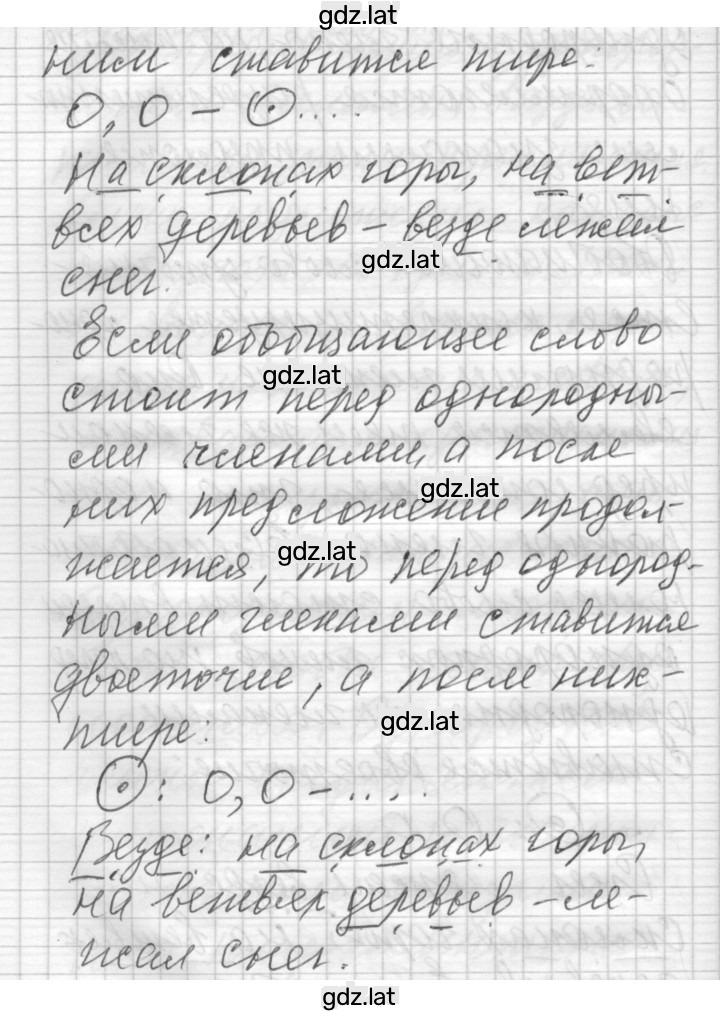 gdz.lat
ним ставится тире:
О, О – ⊙....
На склонах горы, на вет-
вях деревьев – везде лежал
gdz.lat
снег.
Если обобщающее слово
gdz.lat
стоит перед однородны-
ми членами, а после
gdz.lat
них предложение продол-
gdz.lat
жается, то перед однород-
ными членами ставится
двоеточие, а после них -
gdz.lat
тире:
⊙: О, О – ....
Везде: на склонах горы,
на ветвях деревьев – ле-
жал снег.
gdz.lat